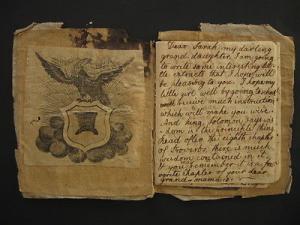 Dear Sarah, my darling
grand daughter, I am going
to write some interesting lit
tle extracts that I hope will
be pleasing to you. I hope my
little girl will by going to school
will receive much instruction
which will make you wise.
And king Solomon says wis
dom is the principle thing
Read often the eighth chapter
of Proverbs, there is much
wisdom contained in it.
you remember it is a fav
orite chapter of your dear
grand mama's